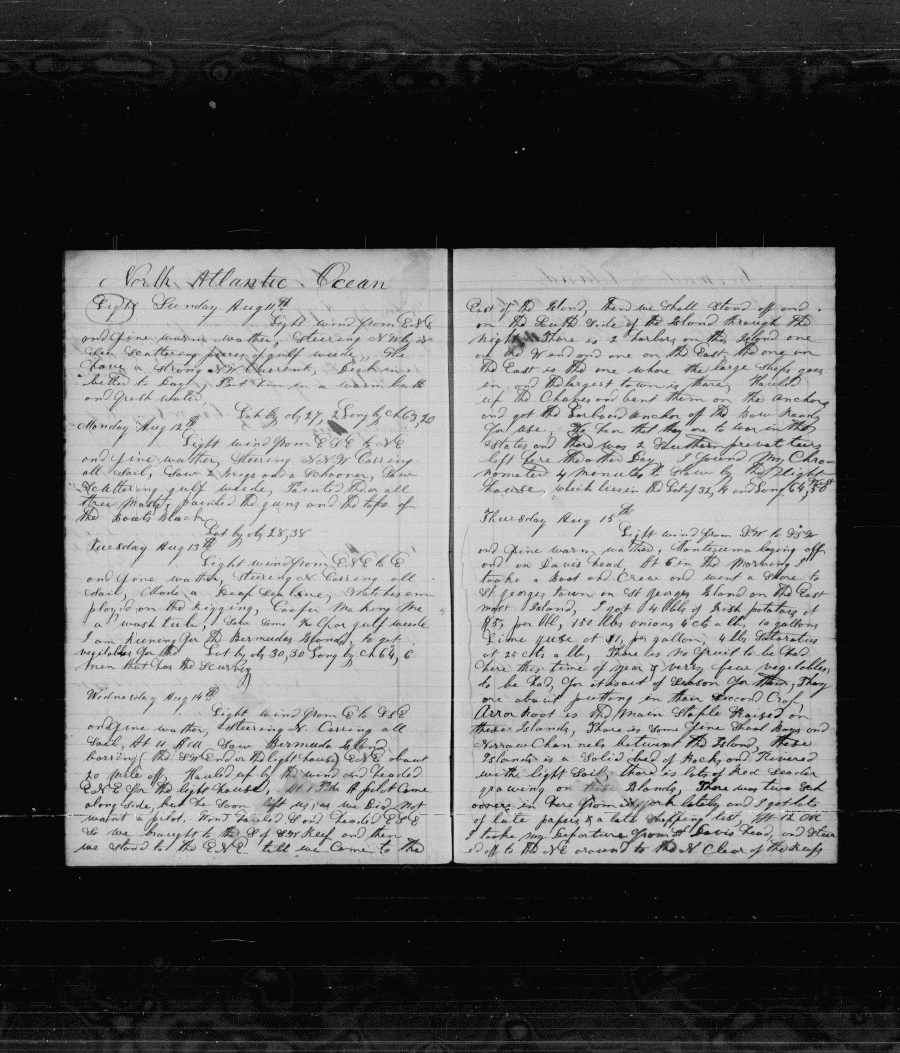 North Atlantic Ocean
Light Sunday Aug 11th
Light wind from ENE
and fine warm wather, Steering NW by N
See Scattering peices of gulf weede, We
have a Strong NW Current,
better to Day, Put him in a warm bath
and fresh water
Lat by ob 27, 2 Long by Ch 63, 20
Monday Aug 12th
Light wind from ESE to NE
and fine wather, Steering NNW Carring
all Sail, Saw 2 brigs and a Schooner, Saw
Scattering gulf weede, Painted the or all
three Masts, painted the guns and the tops of
the boats black
Lat by ob 28, 38
Tuesday Aug 13th
Light wind from ENE to E
and fine wather, Steering N Carring all
Sail, Made a Deap Sea line, Watches em
ployed on the Rigging, Cooper Making me
a wash tub, Saw Some more gulf weede
I am runing for the Bermudas Islands, to get
vegitables for the Lat by ob 30, 30 Long by Ch 64, 6
men that has the Scurvey
Wednesday Aug 14th
Light wind from E to ESE
and fine wather, Steering N Carring all
Sail, At 11 AM Saw Bermuda Island
barring the SW End or the light house ENE about
20 mile off, Hauled up by the wind and headed
ENE for the light house, At 1 PM A pilot Came
along Side, but he Soon left us, as we Did Not
want a pilot. Wind hauled S and headed ESE
So we brought to the S of SW Reef and then
we stood to the ENE till we Come to the
East of the Island, then we Shall Stand off and
on the South Side of the Island through the
Night, There is 2 harbors on this Island one
on the W end and one on the East, the one on
the East is the one where the large Ships goes
in and the largest town is there, Hauld
up the Chains and bent them on the anchors
and got the Larboard anchor of the Bow Ready
for use, We hear that they are to war in the
States and there was 2 Southern privateers
left here the other Day I found My Chro
nometer 4 minutes to Slow by the light
house, which lies in the Lat of 32, 14 and Long 64, 50
Thursday Aug 15th
Light wind from SW to SSW
and fine warm wather, Montezuma laying off
and on Davis head, At 6 in the Morning I
tooke a boat and Crew and went a Shore to
St georges town on St georges Island on the East
most Island, I got 4 bbls of Irish potatoes at
$5, per bbl, 150 lbs onions 4 cts a lb, 10 gallons
Lime guse at $1, per gallon, 4 lbs Saleratus
at 25 cts a lb, There is no fruit to be had
here this time of year & verry few vegitables
to be had, for it is out of Season for them, They
are about putting in their Second Crop,
Arrow Root is the Main Staple Raised on
these Islands, There is Som fine Shoal Bays and
Narrow Channels between the Island, These
Islands is a Solid bed of Rocks, and Covered
with light Soil, there is lots of Red Seader
growing on these Islands, There was two Sch
ooners in here from N York lately and I got lots
of late papers & a late Shipping list, At 12 M
I tooke my Departure from St Davis head, and Steer
ed off to the NE around to the N Clear of the Reefs